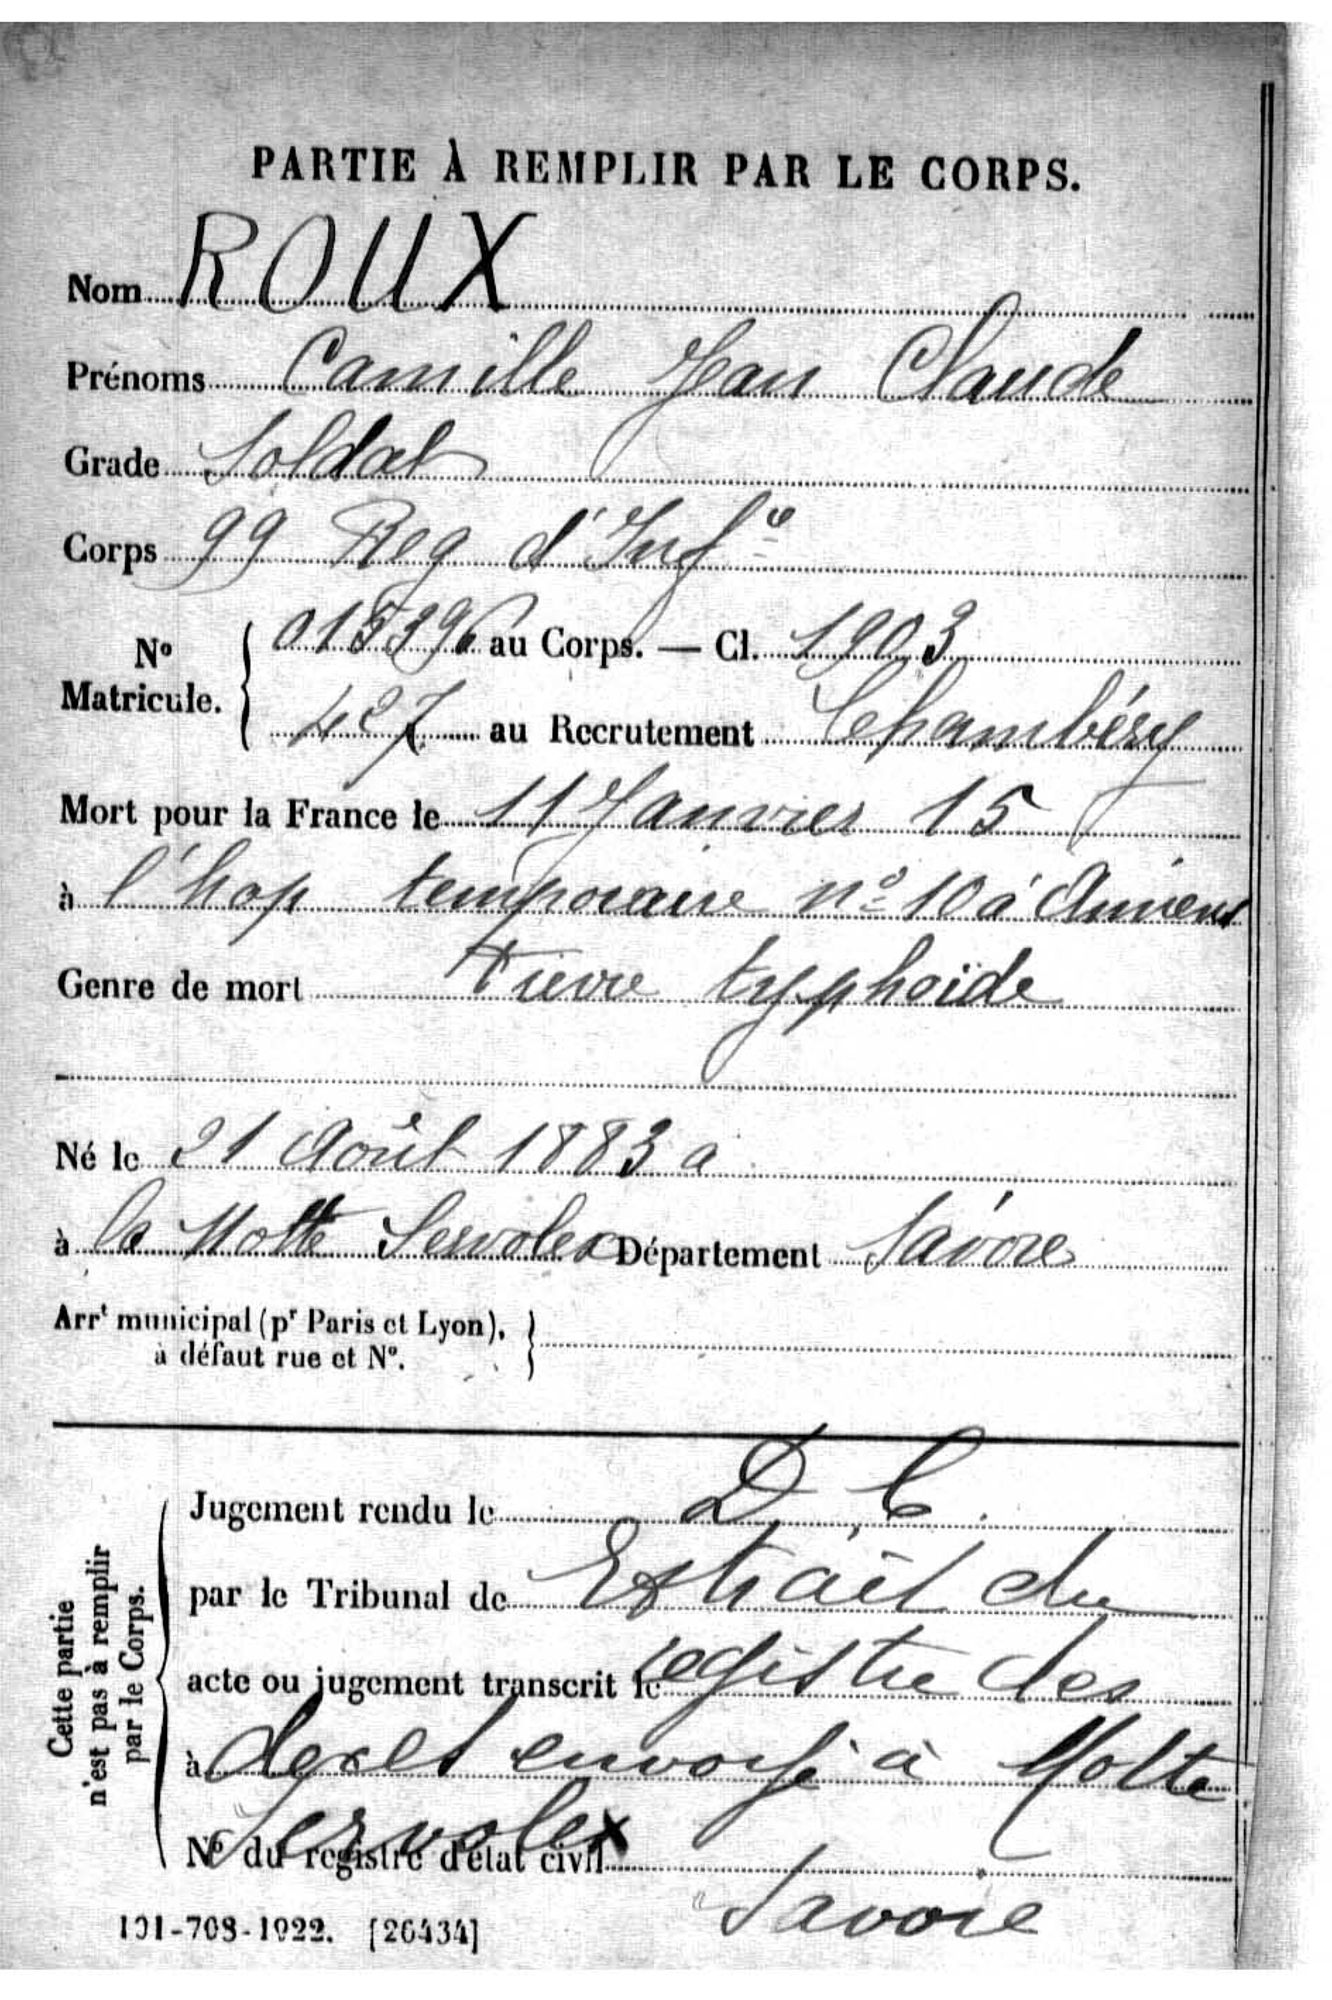 PARTIE À REMPLIR PAR LE CORPS.
Nom ROUX
Prénoms Camille Jean Claude
Grade Soldat
Corps 99 Reg d'Inf ie
N° Matricule. { 015396 au Corps. — Cl. 1903
427 au Recrutement Chambéry
Mort pour la France le 11 Janvier 15
à l'hop temporaire n° 10 à Amiens
Genre de mort Fievre typhoïde
Né le 21 Août 1883 a
à la Motte Servolex Département Savoie
Arrt municipal (pr Paris et Lyon), à défaut rue et N°. }
Cette partie n'est pas à remplir par le Corps.
Jugement rendu le D. C.
par le Tribunal de Extrait du
acte ou jugement transcrit le registre des
à deces envoyé à Motte
Servolex
N° du registre d'état civil
Savoie
101-708-1922. [26434]